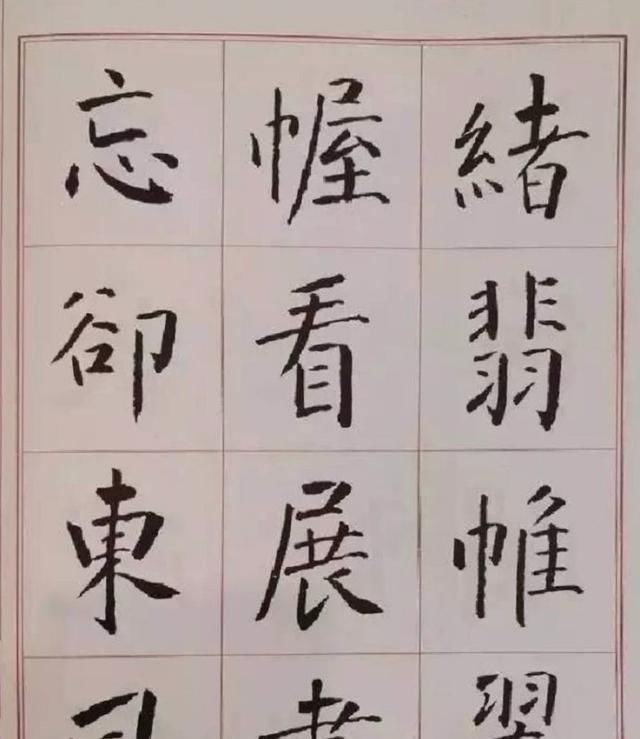 緒翡帷翠
幄看展
忘卻東